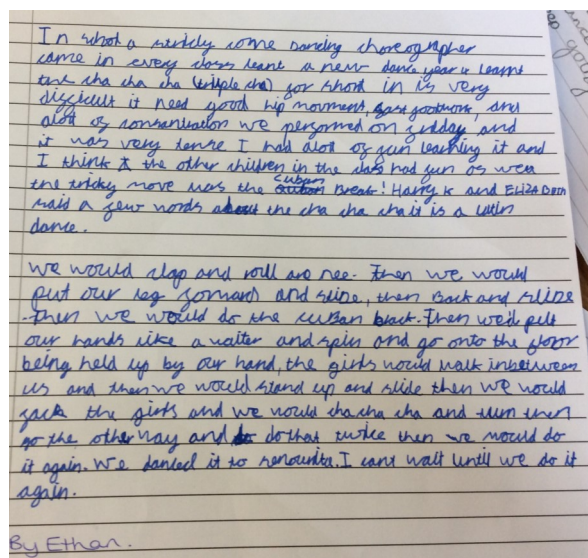 In school a strictly come Dancing choreographer
came in every class leant a new dance year 4 learnt
the cha cha cha (triple cha) for short in is very
difficult it need good hip movment, fast footwork, and
alot of consantration we performed on friday, and
it was very tense I had alot of fun learning it and
I think the other children in the class had fun as well
the tricky move was the cuban Break! Harry K and ELIZABETH
said a few words about the cha cha cha it is a latin
dance.
we would clap and roll are nee. Then we would
put our leg forward and slide, then Back and slide
Then we would do the cuban back. Then we'd put
our hands like a waiter and spin and go onto the floor
being held up by our hand, the girls would walk inbetween
us and then we would stand up and slide then we would
face the girls and we would cha cha cha and turn then
go the other way and do that twice then we would do
it again. We danced it to senourita. I cant wait until we do it
again.
By Ethan.